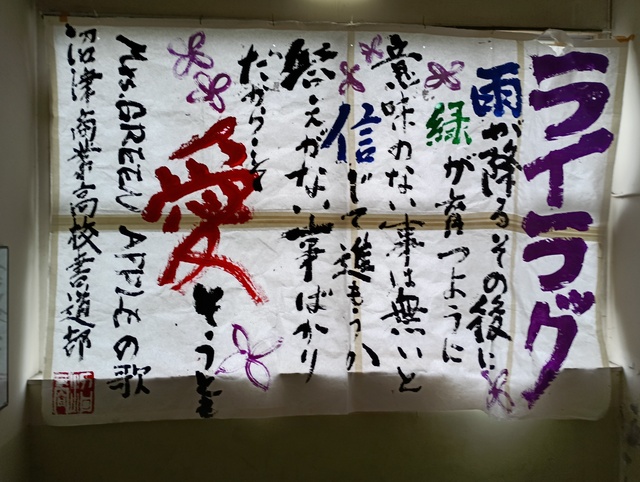 ライラック
雨が降るその後に
緑が育つように
意味のない事は無いと
信じて進もうか
答えがない事ばかり
だからこそ
愛そうとも
Mrs.GREEN APPLEの歌
沼津商業高校書道部